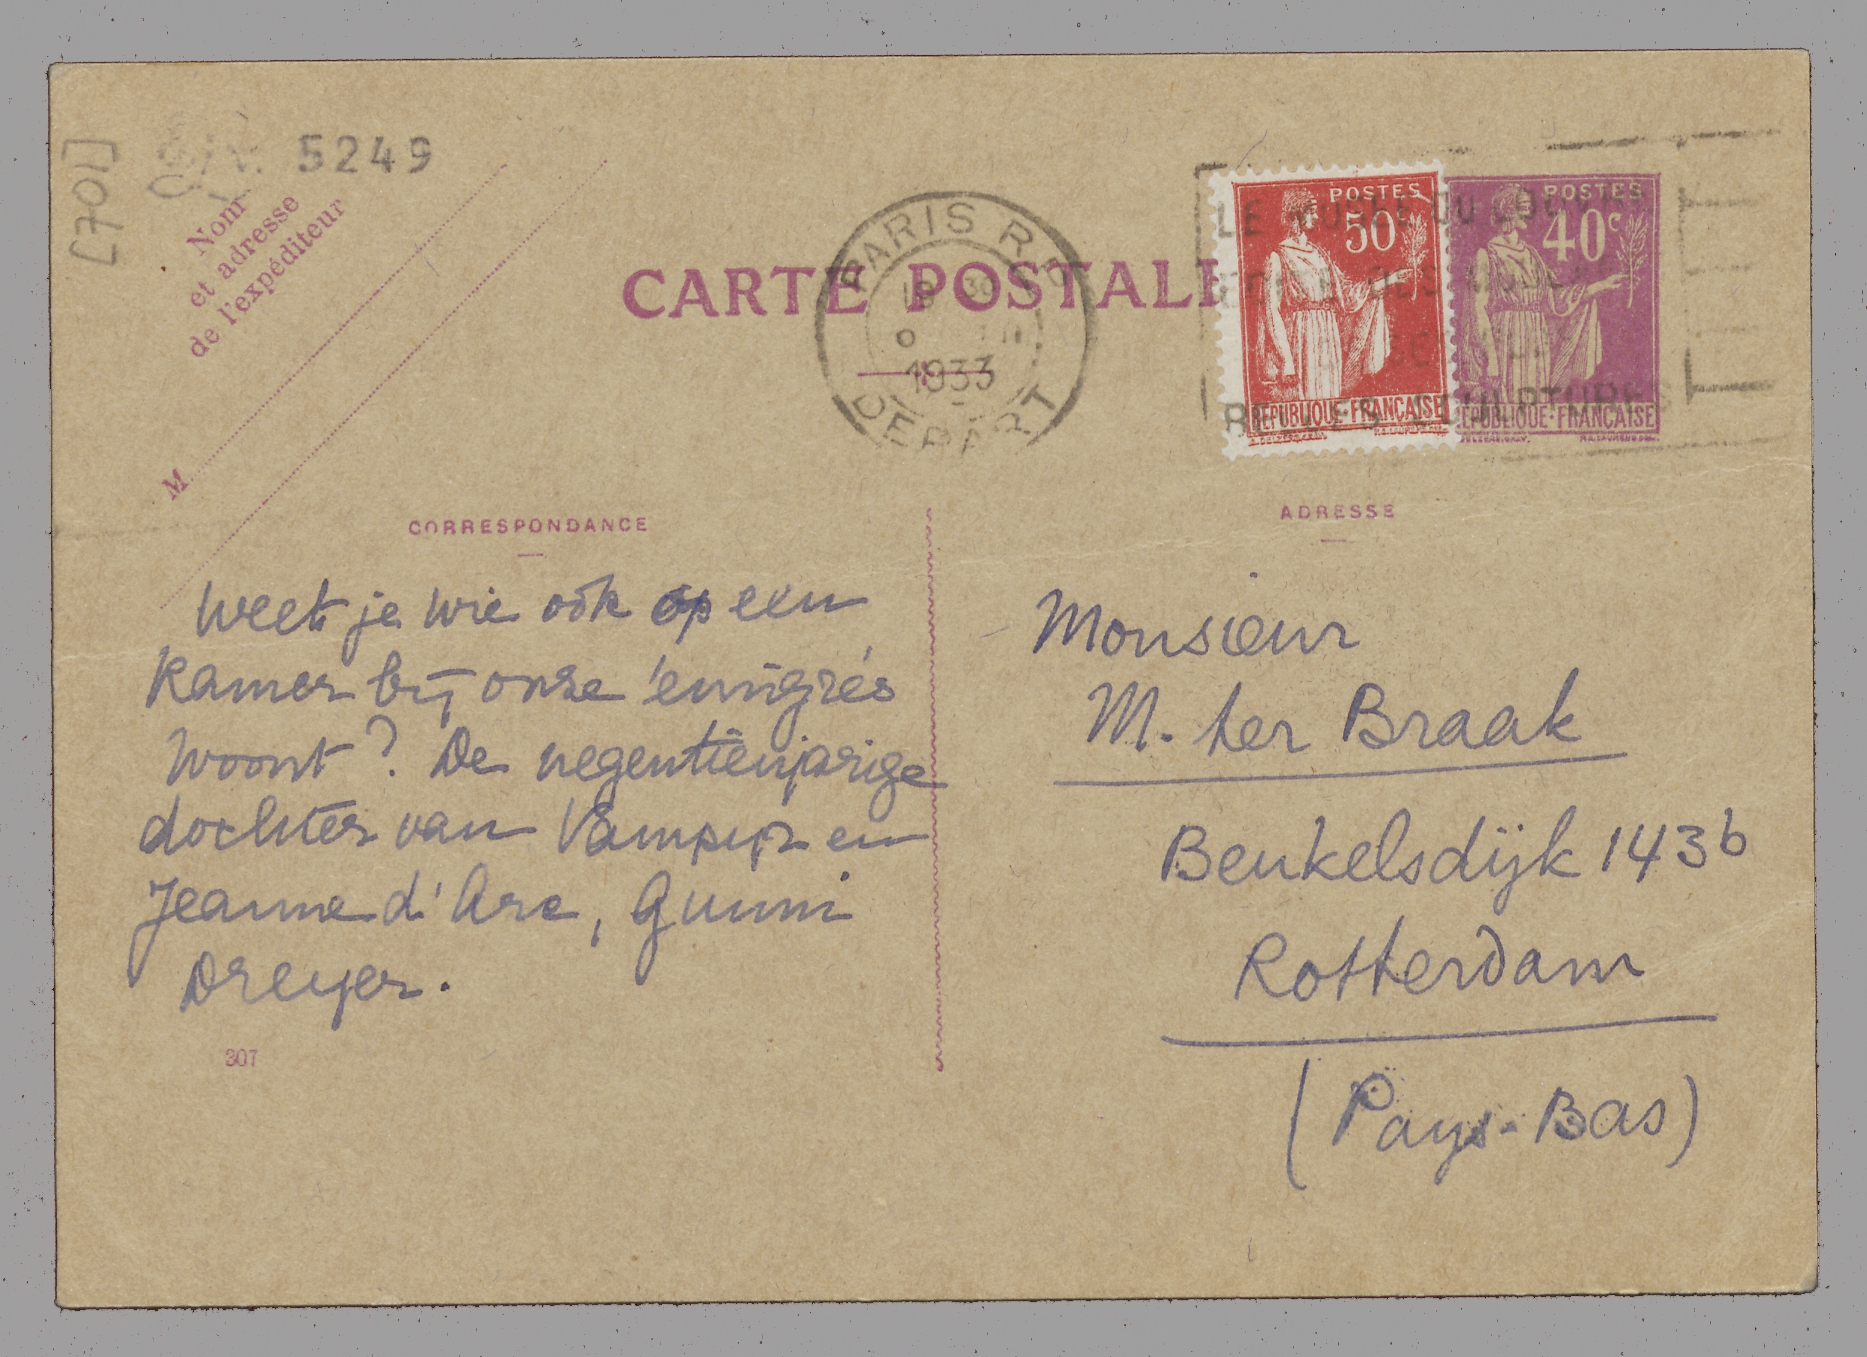 [701]
5249
Nom
et adresse
de l'expéditeur
M
CARTE POSTALE
PARIS R.P
18 30
1933
DEPART
LE MUSEE DU
BELLES SCULPTURES
POSTES
50
REPUBLIQUE-FRANÇAISE
POSTES
40c
REPUBLIQUE-FRANÇAISE
CORRESPONDANCE
Weet je wie ook op een
Kamer bij onze émigrés
woont? De negentienjarige
dochter van Vampyr en
Jeanne d'Arc, Gunni
Dreyer.
307
ADRESSE
Monsieur
M. ter Braak
Beukelsdijk 143b
Rotterdam
(Pays-Bas)